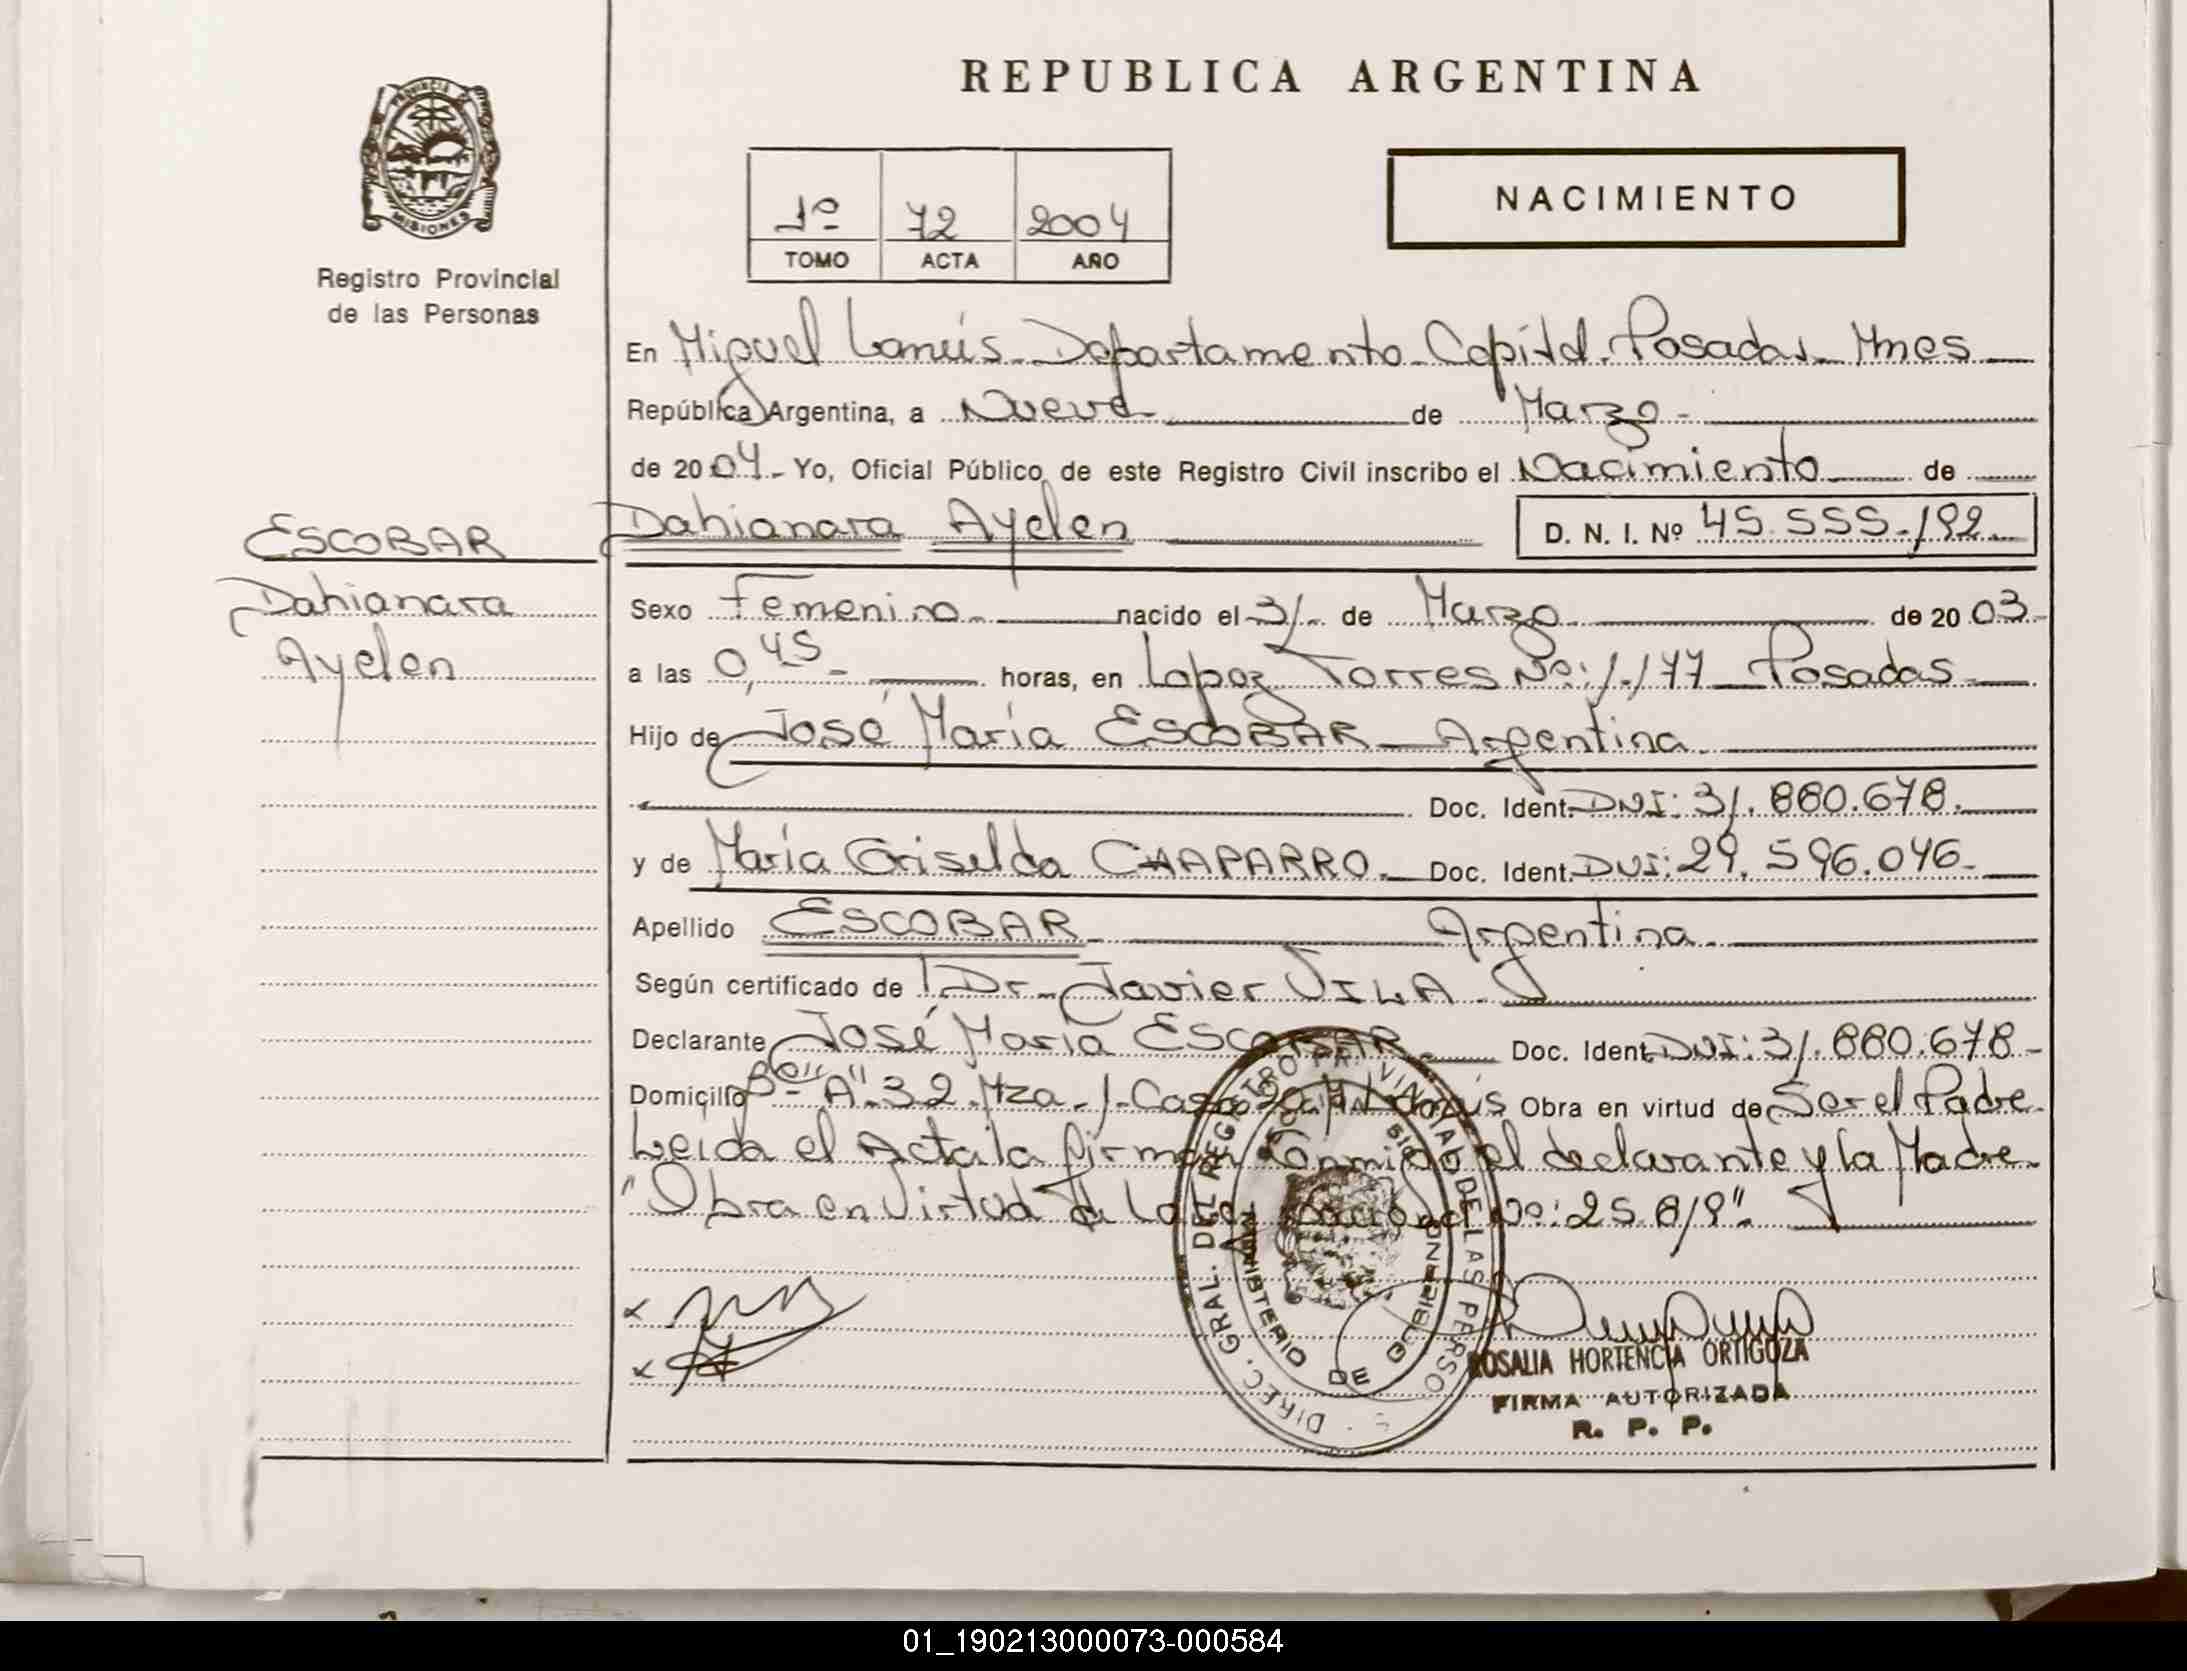 REPUBLICA ARGENTINA
PROVINCIA DE
MISIONES
Registro Provincial
de las Personas
1º 72 2004
TOMO ACTA AÑO
NACIMIENTO
En Miguel Lanús - Departamento - Capital - Posadas - Mnes
República Argentina, a Nueve de Marzo -
de 2004.- Yo, Oficial Público de este Registro Civil inscribo el Nacimiento de
ESCOBAR
Dahianara
Ayelen
Dahianara Ayelen D. N. I. Nº 45.555.192
Sexo Femenino - nacido el 31 - de Marzo de 2003.-
a las 0,45 - horas, en Lopez Torres Nº: 1.177 - Posadas -
Hijo de José María ESCOBAR - Argentina
Doc. Ident. DNI: 31.880.678.
y de María Griselda CHAPARRO. Doc. Ident. DNI: 29.596.046.
Apellido ESCOBAR Argentina.
Según certificado de Dr. Javier VILA.
Declarante José María ESCOBAR Doc. Ident. DNI: 31.880.678 -
Domicilio Bº "A" 32 Mza. 1. Casa Lanús Obra en virtud de Ser el Padre.
Leida el Acta la firman Conmigo el declarante y la Madre.
"Obra en Virtud de La Ley Nacional Nº: 25.819".
DIREC. GRAL. DEL REGISTRO PROVINCIAL DE LAS PERSO
MINISTERIO DE GOBIERNO
ROSALIA HORTENCIA ORTIGOZA
FIRMA AUTORIZADA
R. P. P.
01_190213000073-000584